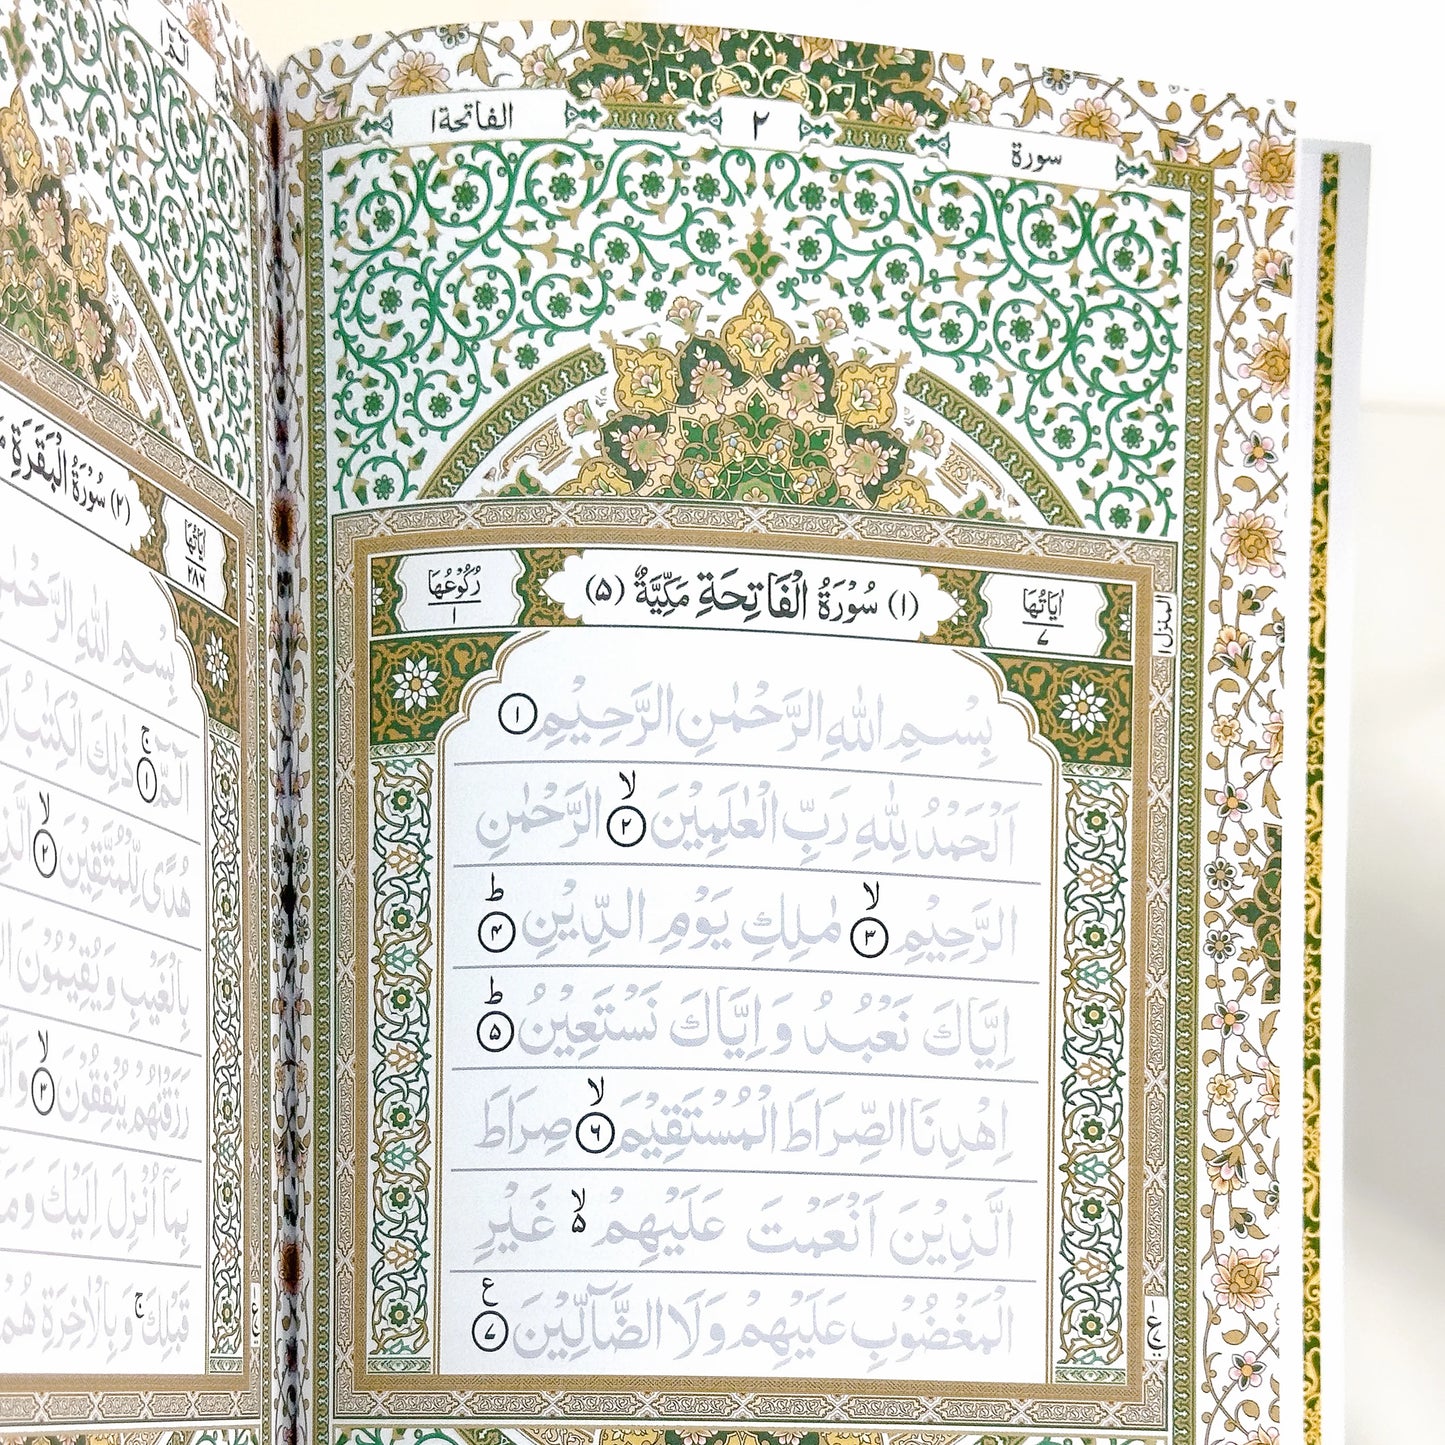 سورة
٢
الفاتحة ١
اٰيَاتُهَا ٧
(١) سُوْرَةُ الْفَاتِحَةِ مَكِّيَّةٌ (٥)
رُكُوْعُهَا ١
المنزل ١
بِسْمِ اللهِ الرَّحْمٰنِ الرَّحِيْمِ ١
اَلْحَمْدُ لِلّٰهِ رَبِّ الْعٰلَمِيْنَ لا ٢ الرَّحْمٰنِ
الرَّحِيْمِ لا ٣ مٰلِكِ يَوْمِ الدِّيْنِ ط ۴
اِيَّاكَ نَعْبُدُ وَاِيَّاكَ نَسْتَعِيْنُ ط ۵
اِهْدِنَا الصِّرَاطَ الْمُسْتَقِيْمَ لا ۶ صِرَاطَ
الَّذِيْنَ اَنْعَمْتَ عَلَيْهِمْ لا ۵ غَيْرِ
الْمَغْضُوْبِ عَلَيْهِمْ وَلَا الضَّآلِّيْنَ ع ٧
الٓمّٓ ١
(٢) سُوْرَةُ الْبَقَرَةِ
اٰيَاتُهَا ٢٨٦
المنزل ١
بِسْمِ اللهِ الرَّحْمٰنِ
الٓمّٓ ج ١ ذٰلِكَ الْكِتٰبُ لَا
هُدًى لِّلْمُتَّقِيْنَ لا ٢
بِالْغَيْبِ وَيُقِيْمُوْنَ
رَزَقْنٰهُمْ يُنْفِقُوْنَ لا ٣
بِمَآ اُنْزِلَ اِلَيْكَ
قَبْلِكَ ج وَبِالْاٰخِرَةِ هُمْ